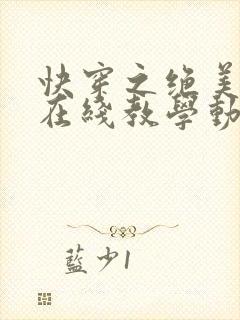 快穿之绝美
在线教学動
藍少1